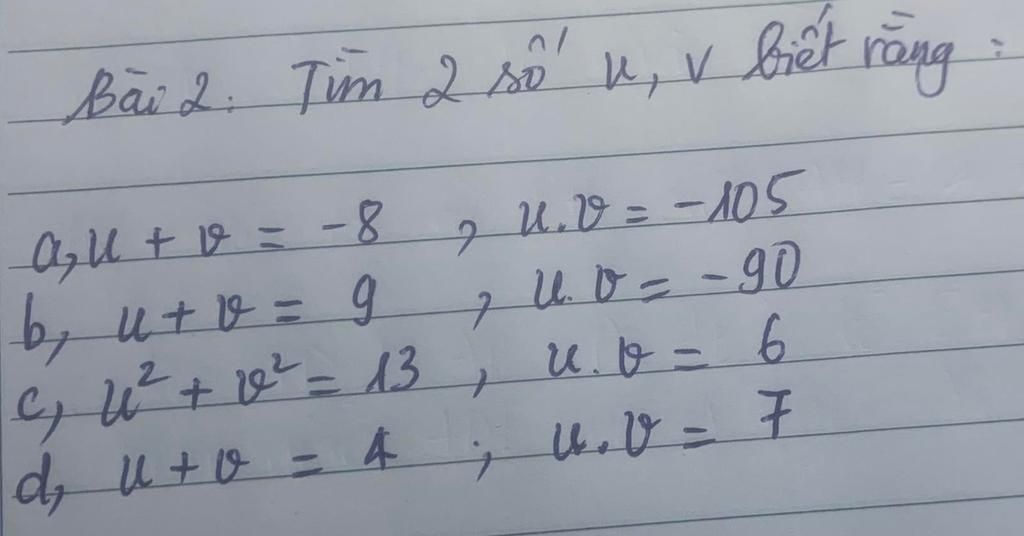 Bài 2. Tìm 2 số u, v biết rằng :
a, u + v = -8 , u.v = -105
b, u + v = 9 , u.v = -90
c, u² + v² = 13 , u.v = 6
d, u + v = 4 ; u.v = 7